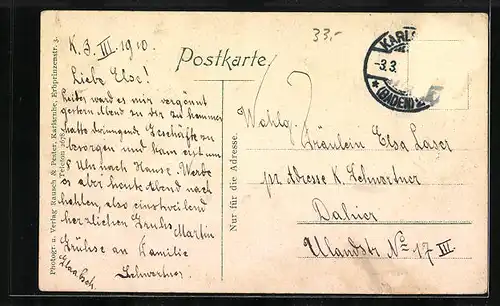 K. 3. III. 1910.
Liebe Else!
Leider ward es mir vergönnt
gestern Abend zu dir zu kommen
hatte dringende Geschäfte zu
besorgen und kam erst um
8 Uhr nach Hause. Werde
es aber heute Abend nach
hohlen, also einstweilen
herzlichen Gruhs Martin
Grühse an Familie
Schwertner
Photogr. u. Verlag Rausch & Pester, Karlsruhe, Erbprinzenstr. 3.
Telefon 2678.
Postkarte.
33,-
KARLS
-3.3.
(BADEN)
Nur für die Adresse.
Wohlg.
Fräulein Elsa Laser
pr Adresse K. Schwertner
Dahier
Ulandstr No 17 III.